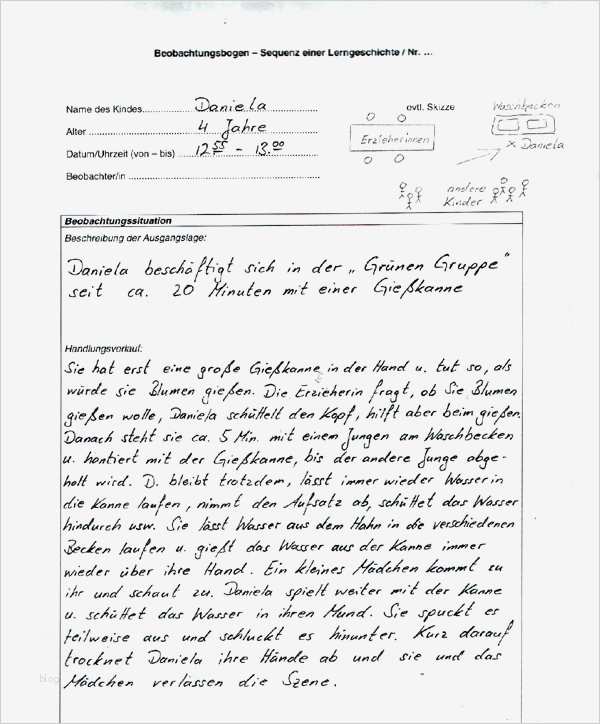 Beobachtungsbogen – Sequenz einer Lerngeschichte / Nr. ...
Name des Kindes Daniela
Alter 4 Jahre
Datum/Uhrzeit (von – bis) 12 55 – 13.00
Beobachter/in
evtl. Skizze
Waschbecken
Erzieherinnen
x Daniela
andere
Kinder
Beobachtungssituation
Beschreibung der Ausgangslage:
Daniela beschäftigt sich in der „Grünen Gruppe"
seit ca. 20 Minuten mit einer Gießkanne
Handlungsverlauf:
Sie hat erst eine große Gießkanne in der Hand u. tut so, als
würde sie Blumen gießen. Die Erzieherin fragt, ob Sie Blumen
gießen wolle, Daniela schüttelt den Kopf, hilft aber beim gießen.
Danach steht sie ca. 5 Min. mit einem Jungen am Waschbecken
u. hantiert mit der Gießkanne, bis der andere Junge abge-
holt wird. D. bleibt trotzdem, lässt immer wieder Wasser in
die Kanne laufen, nimmt den Aufsatz ab, schüttet das Wasser
hindurch usw. Sie lässt Wasser aus dem Hahn in die verschiedenen
Becken laufen u. gießt das Wasser aus der Kanne immer
wieder über ihre Hand. Ein kleines Mädchen kommt zu
ihr und schaut zu. Daniela spielt weiter mit der Kanne
u. schüttet das Wasser in ihren Mund. Sie spuckt es
teilweise aus und schluckt es hinunter. Kurz darauf
trocknet Daniela ihre Hände ab und sie und das
Mädchen verlassen die Szene.